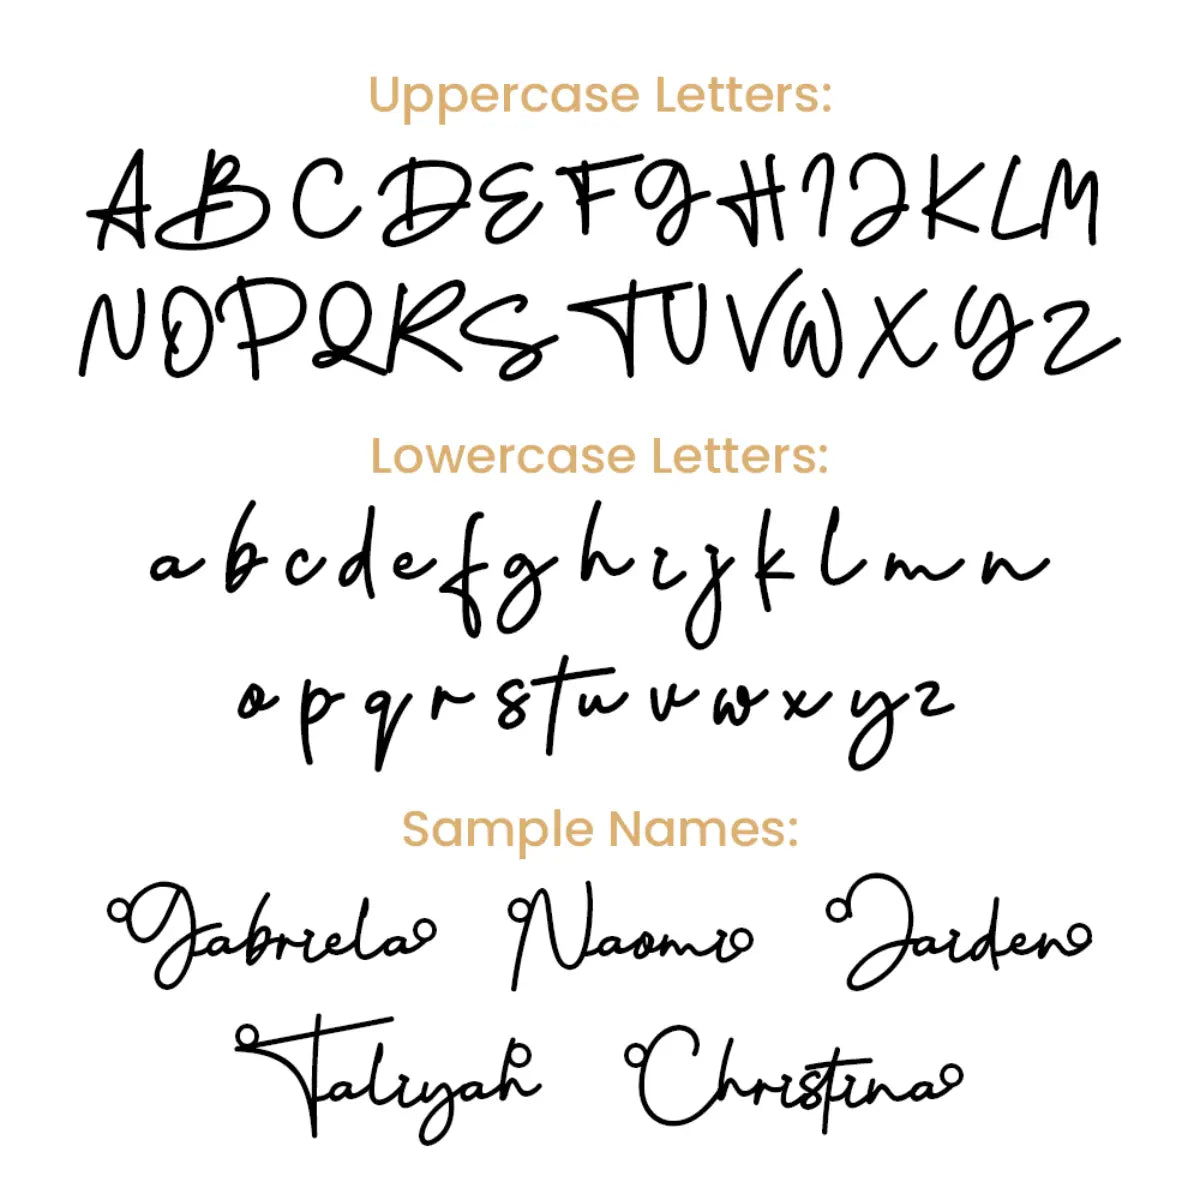 Uppercase Letters:
A B C D E F G H I J K L M
N O P Q R S T U V W X Y Z
Lowercase Letters:
a b c d e f g h i j k l m n
o p q r s t u v w x y z
Sample Names:
Gabriela Naomi Jaiden
Taliyah Christina